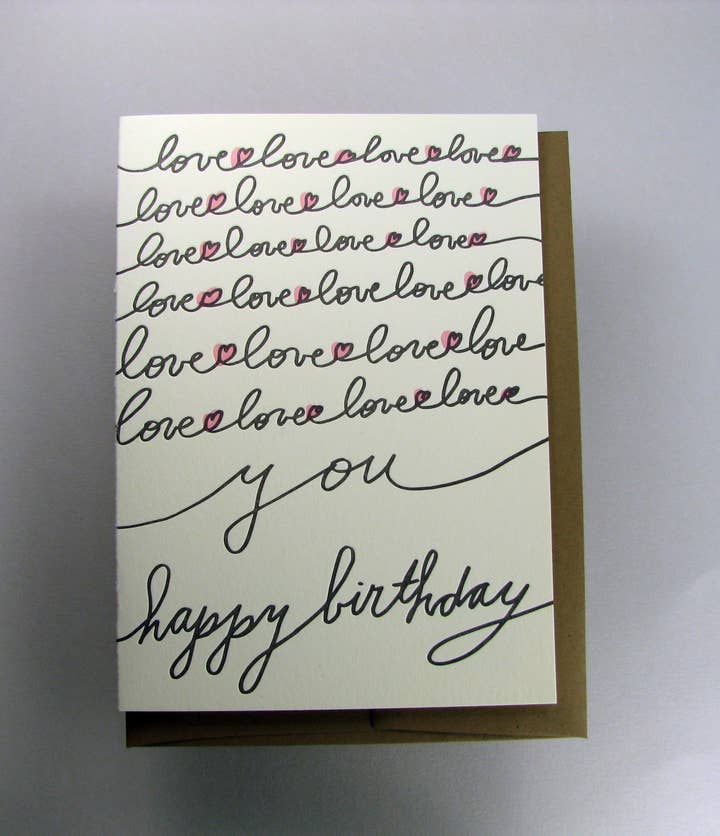 love love love love
love love love love
love love love love
love love love love love
love love love love
love love love love
you
happy birthday